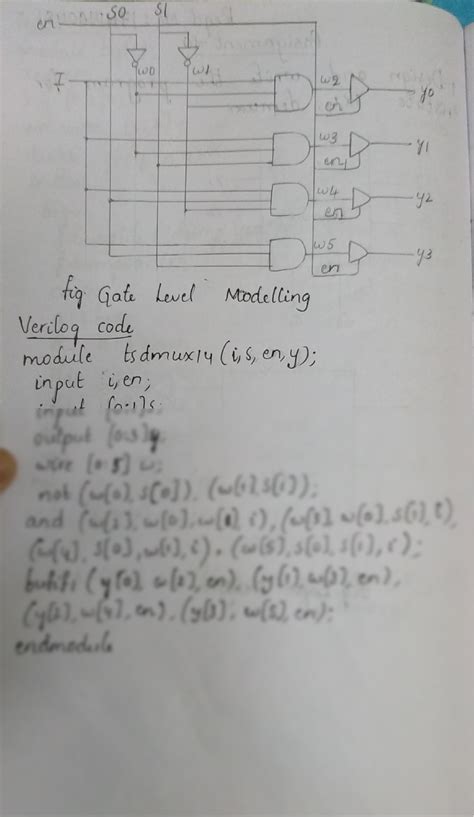 en S0 S1
w0 w1
I
w2
en y0
w3
en y1
w4
en y2
w5
en y3
fig Gate Level Modelling
Verilog code
module tsdmux14 (i,s,en,y);
input i,en;
input [0:1]s;
output [0:3]y;
wire [0:5] w;
not (w[0],s[0]), (w[1],s[1]);
and (w[2],w[0],w[1],i), (w[3],w[0],s[1],i),
(w[4],s[0],w[1],i), (w[5],s[0],s[1],i);
bufif1 (y[0],w[2],en), (y[1],w[3],en),
(y[2],w[4],en), (y[3],w[5],en);
endmodule